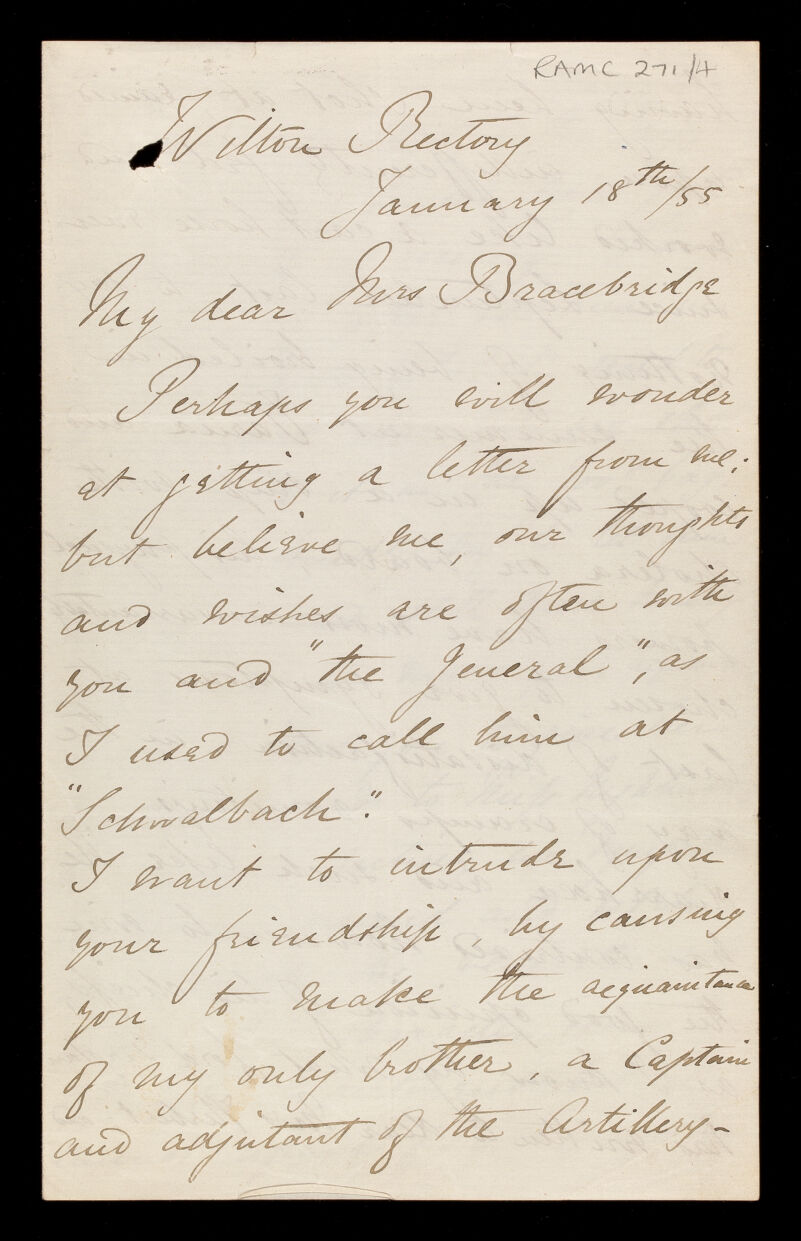 RAMC 271/4
Wilton Rectory
January 18th/55
My dear Mrs Bracebridge
Perhaps you will wonder
at getting a letter from me;
but believe me, our thoughts
and wishes are often with
you and "the General", as
I used to call him at
"Schwalbach".
I want to intrude upon
your friendship, by causing
you to make the acquaintance
of my only brother, a Captain
and adjutant of the Artillery-